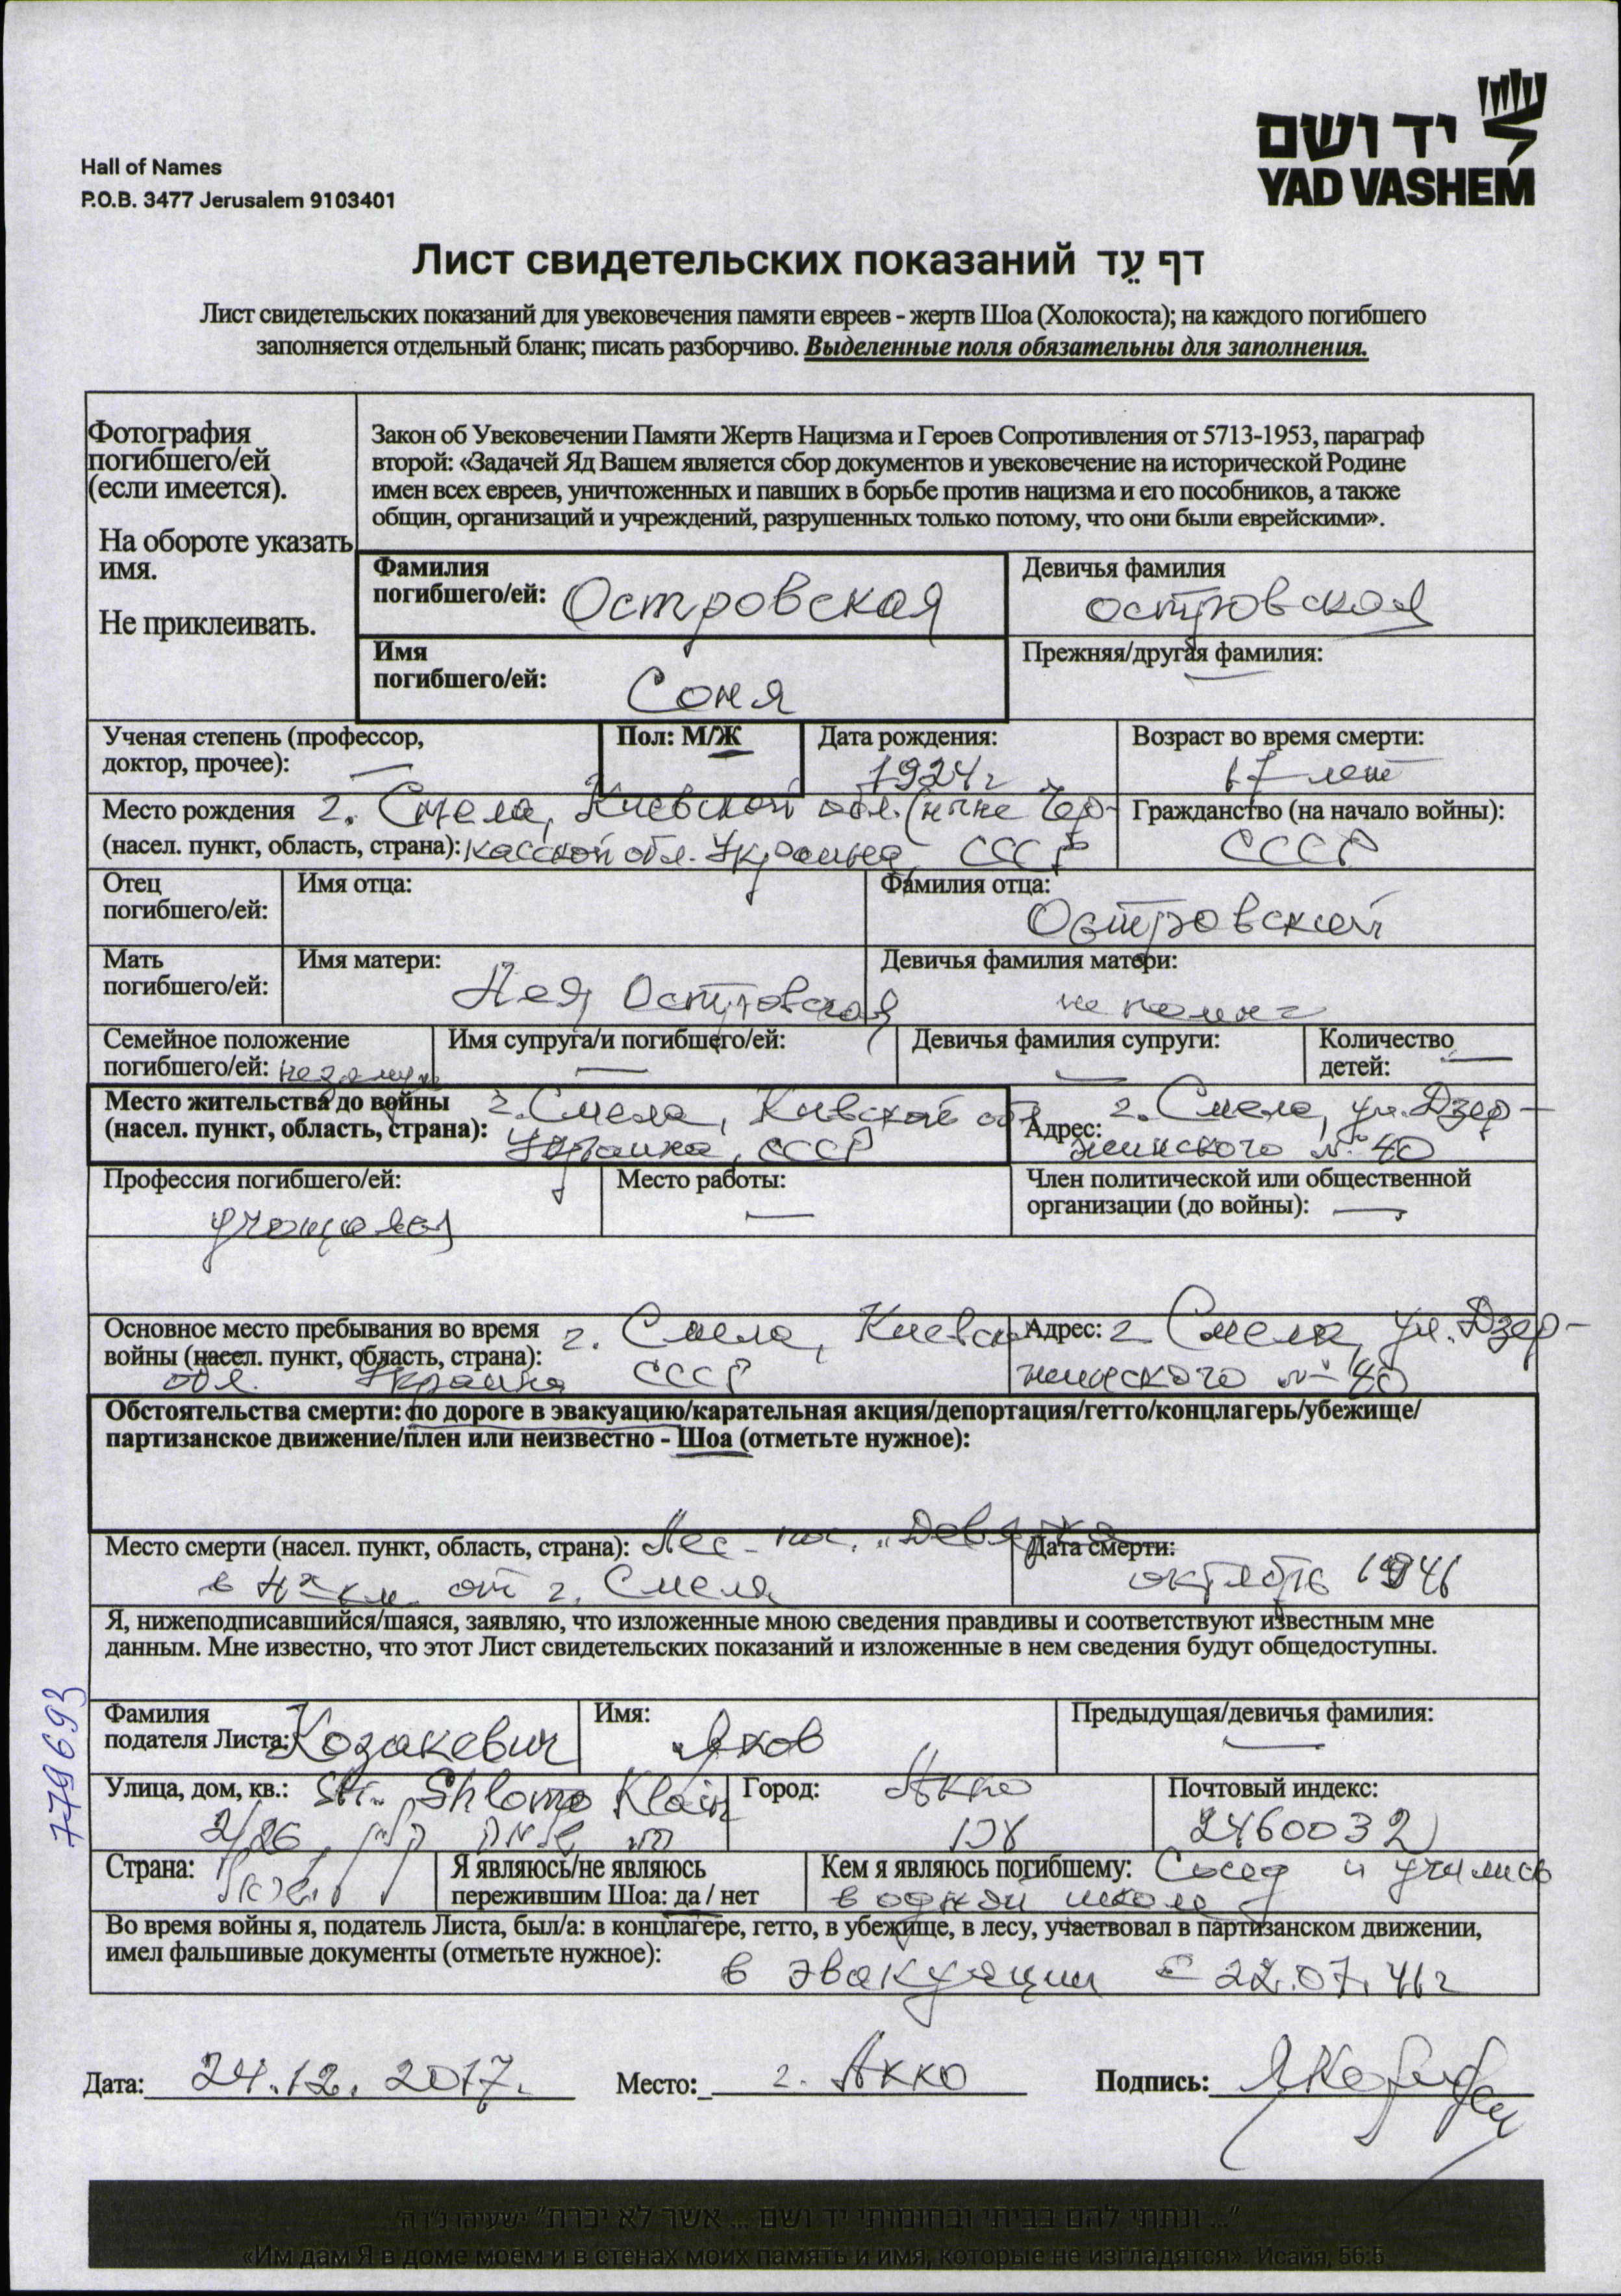 יד ושם
YAD VASHEM
Hall of Names
P.O.B. 3477 Jerusalem 9103401
Лист свидетельских показаний דף עֵד
Лист свидетельских показаний для увековечения памяти евреев - жертв Шоа (Холокоста); на каждого погибшего
заполняется отдельный бланк; писать разборчиво. Выделенные поля обязательны для заполнения.
Фотография
погибшего/ей
(если имеется).
На обороте указать
имя.
Не приклеивать.
Закон об Увековечении Памяти Жертв Нацизма и Героев Сопротивления от 5713-1953, параграф
второй: «Задачей Яд Вашем является сбор документов и увековечение на исторической Родине
имен всех евреев, уничтоженных и павших в борьбе против нацизма и его пособников, а также
общин, организаций и учреждений, разрушенных только потому, что они были еврейскими».
Фамилия
погибшего/ей: Островская
Девичья фамилия
островская
Имя
погибшего/ей: Соня
Прежняя/другая фамилия: —
Ученая степень (профессор,
доктор, прочее): —
Пол: М/Ж
Дата рождения:
1924г
Возраст во время смерти:
17 лет
Место рождения г. Смела, Киевской обл. (ныне Чер-
(насел. пункт, область, страна): касской обл. Украина, СССР
Гражданство (на начало войны):
СССР
Отец
погибшего/ей:
Имя отца:
Фамилия отца:
Островский
Мать
погибшего/ей:
Имя матери:
Островская
Девичья фамилия матери:
не помню
Семейное положение
погибшего/ей: незамуж
Имя супруга/и погибшего/ей:
—
Девичья фамилия супруги:
—
Количество
детей: —
Место жительства до войны г. Смела, Киевской обл
(насел. пункт, область, страна): Украина, СССР
г. Смела, ул. Дзер-
Адрес: жинского № 40
Профессия погибшего/ей:
учащаяся
Место работы:
—
Член политической или общественной
организации (до войны): —
Основное место пребывания во время г. Смела, Киевск
войны (насел. пункт, область, страна):
обл. Украина СССР
Адрес: г. Смела, ул. Дзер-
жинского № 40
Обстоятельства смерти: по дороге в эвакуацию/карательная акция/депортация/гетто/концлагерь/убежище/
партизанское движение/плен или неизвестно - Шоа (отметьте нужное):
Место смерти (насел. пункт, область, страна): Лес - пос.
от г. Смела
Дата смерти:
октябрь 1941
Я, нижеподписавшийся/шаяся, заявляю, что изложенные мною сведения правдивы и соответствуют известным мне
данным. Мне известно, что этот Лист свидетельских показаний и изложенные в нем сведения будут общедоступны.
779693
Фамилия
подателя Листа: Козакевич
Имя:
Яков
Предыдущая/девичья фамилия:
—
Улица, дом, кв.: Str. Shlomo Klain
2/26
Город: Акко
עכו
Почтовый индекс:
2460032
Страна:
Я являюсь/не являюсь
пережившим Шоа: да / нет
Кем я являюсь погибшему: Сосед и учились
в одной школе
Во время войны я, податель Листа, был/а: в концлагере, гетто, в убежище, в лесу, участвовал в партизанском движении,
имел фальшивые документы (отметьте нужное):
в эвакуации с 22.07.41г
Дата: 24.12.2017. Место: г. Акко Подпись:
"... ונתתי להם בביתי ובחומותי יד ושם ... אשר לא יכרת" ישעיהו נ"ו ה'
«Им дам Я в доме моем и в стенах моих память и имя, которые не изгладятся». Исайя, 56:5